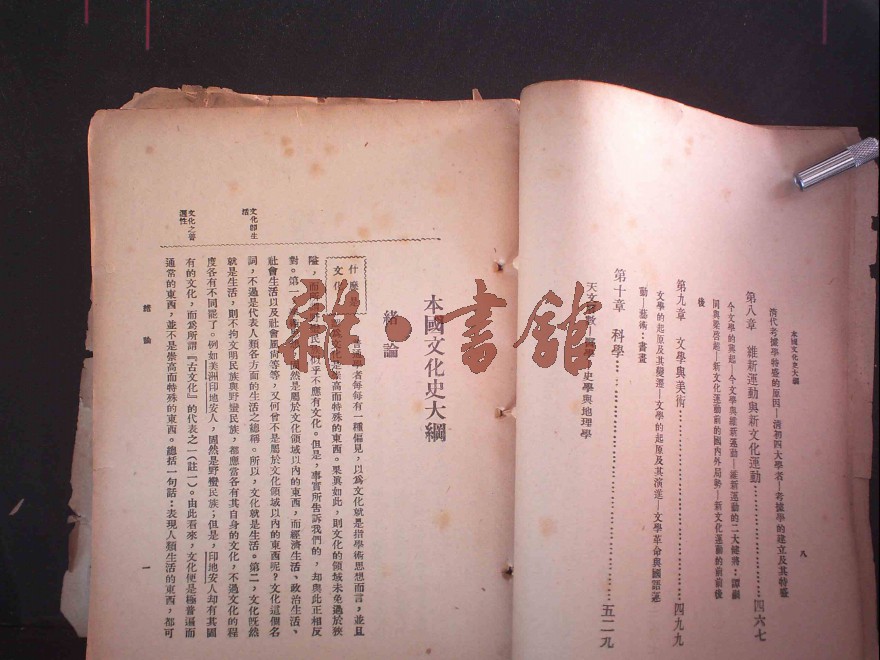 本國文化史大綱
八
清代考據學特盛的原因—清初四大學者—考據學的建立及其特盛
第八章 維新運動與新文化運動……四六七
今文學的興起—今文學與維新運動—維新運動的二大健將：譚嗣
同與梁啓超—新文化運動前的國內外局勢—新文化運動的前前後
後
第九章 文學與美術……四九九
文學的起原及其變遷—文學的起原及其演進—文學革命與國語運
動—藝術：書畫
第十章 科學……五二九
天文 學 史學與地理學
本國文化史大綱
緒論
什麼是
文化 普通學者每每有一種偏見，以爲文化就是指學術思想而言，並且
文化是崇高而特殊的東西。果眞如此，則文化的領域未免過於狹
隘，而 野蠻民族 似乎不應有文化。但是，事實所告訴我們的，却與此正相反
對。第一 固然是屬於文化領域以內的東西，而經濟生活、政治生活、
社會生活以及社會風尙等等，又何曾不是屬於文化領域以內的東西呢？文化這個名
詞，不過是代表人類各方面的生活之總稱。所以，文化就是生活。第二，文化旣然
就是生活，則不拘文明民族與野蠻民族，都應當各有其自身的文化，不過文化的程
度各有不同罷了。例如美洲印地安人，固然是野蠻民族；但是，印地安人却有其固
有的文化，而爲所謂『古文化』的代表之一（註一）。由此看來，文化便是極普遍而
通常的東西，並不是崇高而特殊的東西。總括一句話：表現人類生活的東西，都可
文化卽生
活
文化之普
遍性
緒論
一
雅·書館